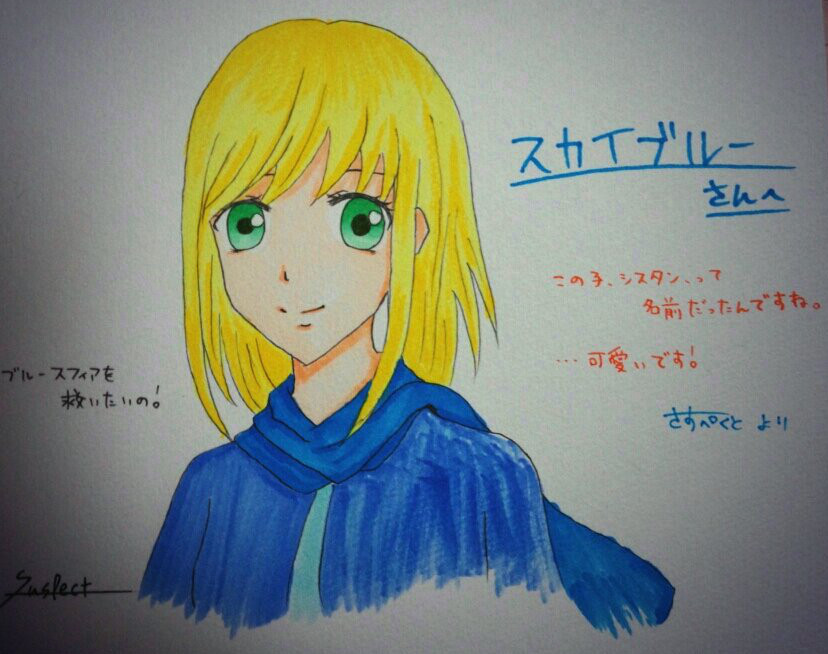 スカイブルー
さんへ
この子、シスタン、って
名前だったんですね。
…可愛いです!
さすぺくと より
ブルースフィアを
救いたいの!
Suspect